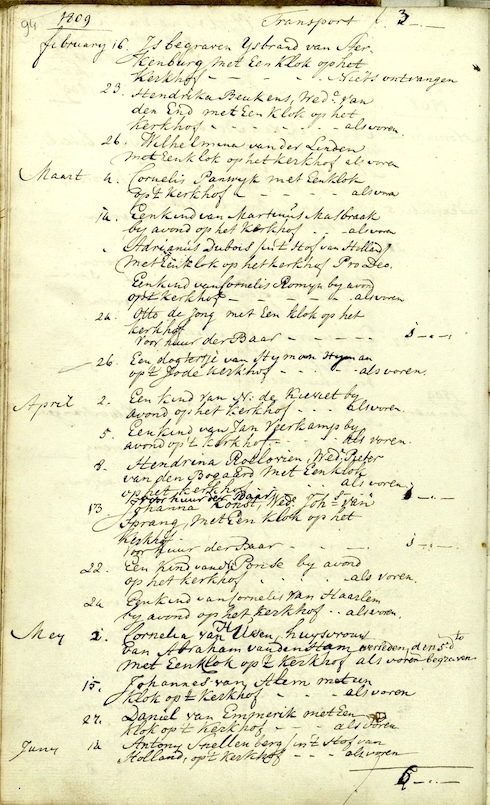 94
1809 Transport 3 - . -
february 16. Is begraven Ysbrand van Ster
kenburg met Een Klok op het
Kerkhof - - - - - Niets ontvangen
23. Hendrika Beukens, Wed.e van
den End met Een klok op het
kerkhof - - - - - als voren
26. Wilhelmina van der Linden
met Een klok op het kerkhof als voren
Maart 4. Cornelis Panwyk met Een klok
op't Kerkhof - - - - als voren
14. Een kind van Martinus Masbraak
by avond op het Kerkhof - - als voren
Adrianus Dubois in't Hof van Holland
met Een klok op het kerkhof Pro Deo.
Een kind van Cornelis Romyn by avond
op't kerkhof - - - - - als voren
24. Otto de Jong met Een klok op het
kerkhof
Voor huur der Baar - - - - - 1 - . -
26. Een dogtertje van Hyman Hyman
op't Jode kerkhof - - - - als voren.
April 2. Een kind van N. de Kieviet by
avond op het kerkhof - - - als voren.
5. Een kind van Jan Veerkamp by
avond op't kerkhof - - - als voren.
8. Hendrina Roelovien, Wed.e Pieter
van den Bogaard met Een klok
op het kerkhof - - - als voren
Voor huur der Baar - - - 1 - . -
13 Johanna Konst, Wed.e Joh.s van
Sprang, met Een klok op het
kerkhof
Voor huur der Baar - - - - 1 - . -
22. Een kind van Ponse by avond
op het kerkhof - - - - als voren.
24. Een kind van Cornelis van Haarlem
by avond op het kerkhof - - als voren.
Mey 2. Cornelia van Uxen, huysvrouw
van Abraham van den Ham, overleden, den 5.d to
met Een klok op't Kerkhof als voren begraven
15. Johannes van Alem met een
klok op't kerkhof - - - als voren
27. Daniel van Emmerik met Een
klok op't kerkhof - - - als voren
Juny 14. Antony Snellenberg in't Hof van
Holland, op't kerkhof - - - als voren
6 - . -